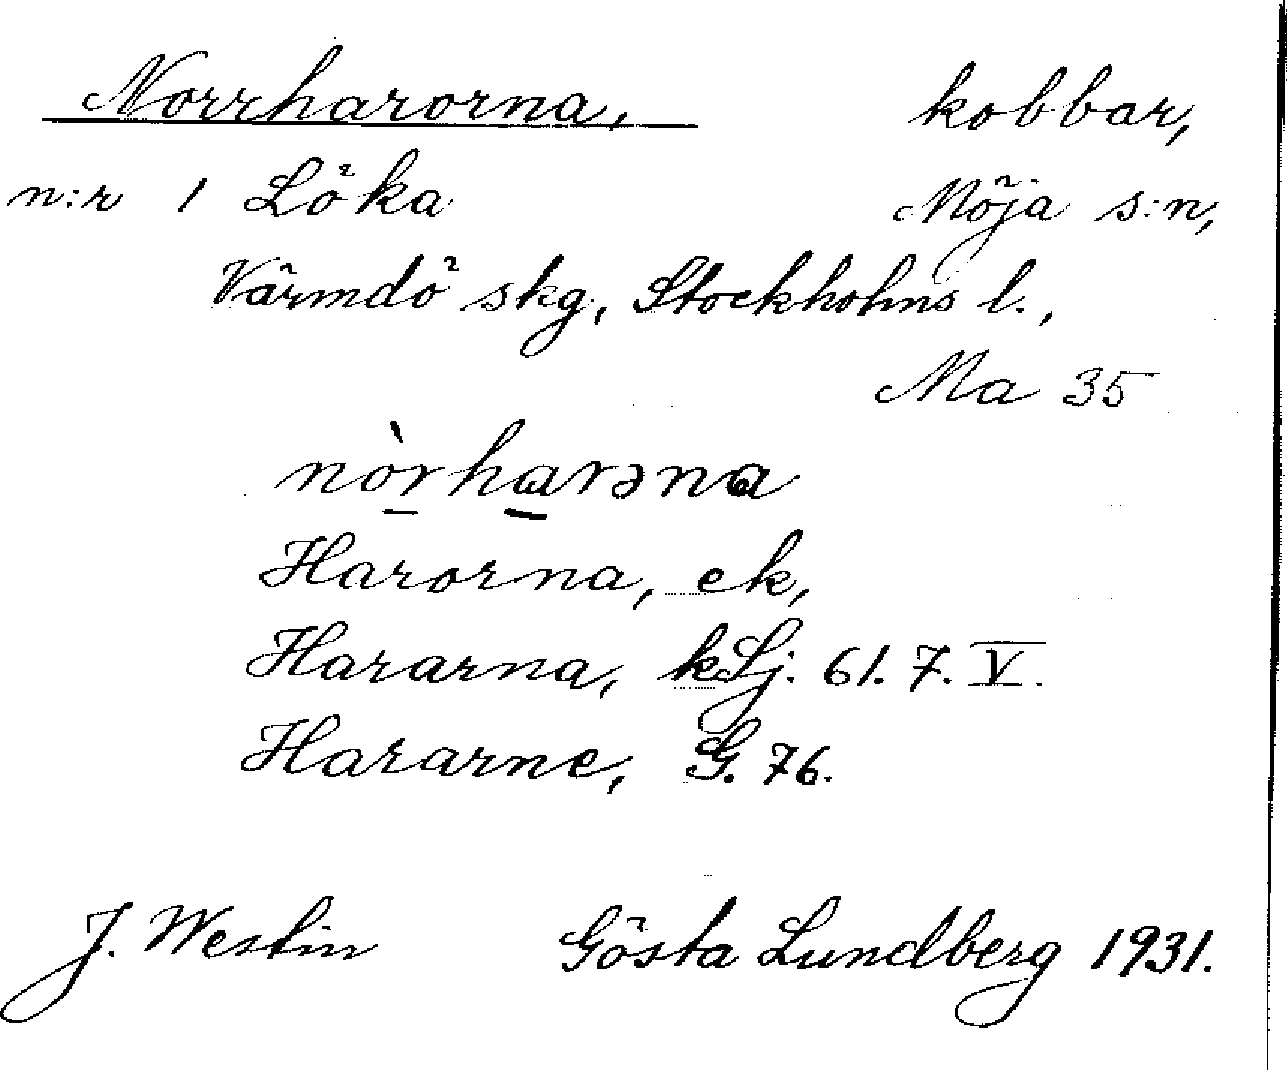 Norrharorna, kobbar,
n:r 1 Löka Möja s:n,
Värmdö skg, Stockholms l.,
Ma 35
nòrharəna
Harorna, ek,
Hararna, kLj. 61. 7. V.
Hararne, G. 76.
J. Westin Gösta Lundberg 1931.